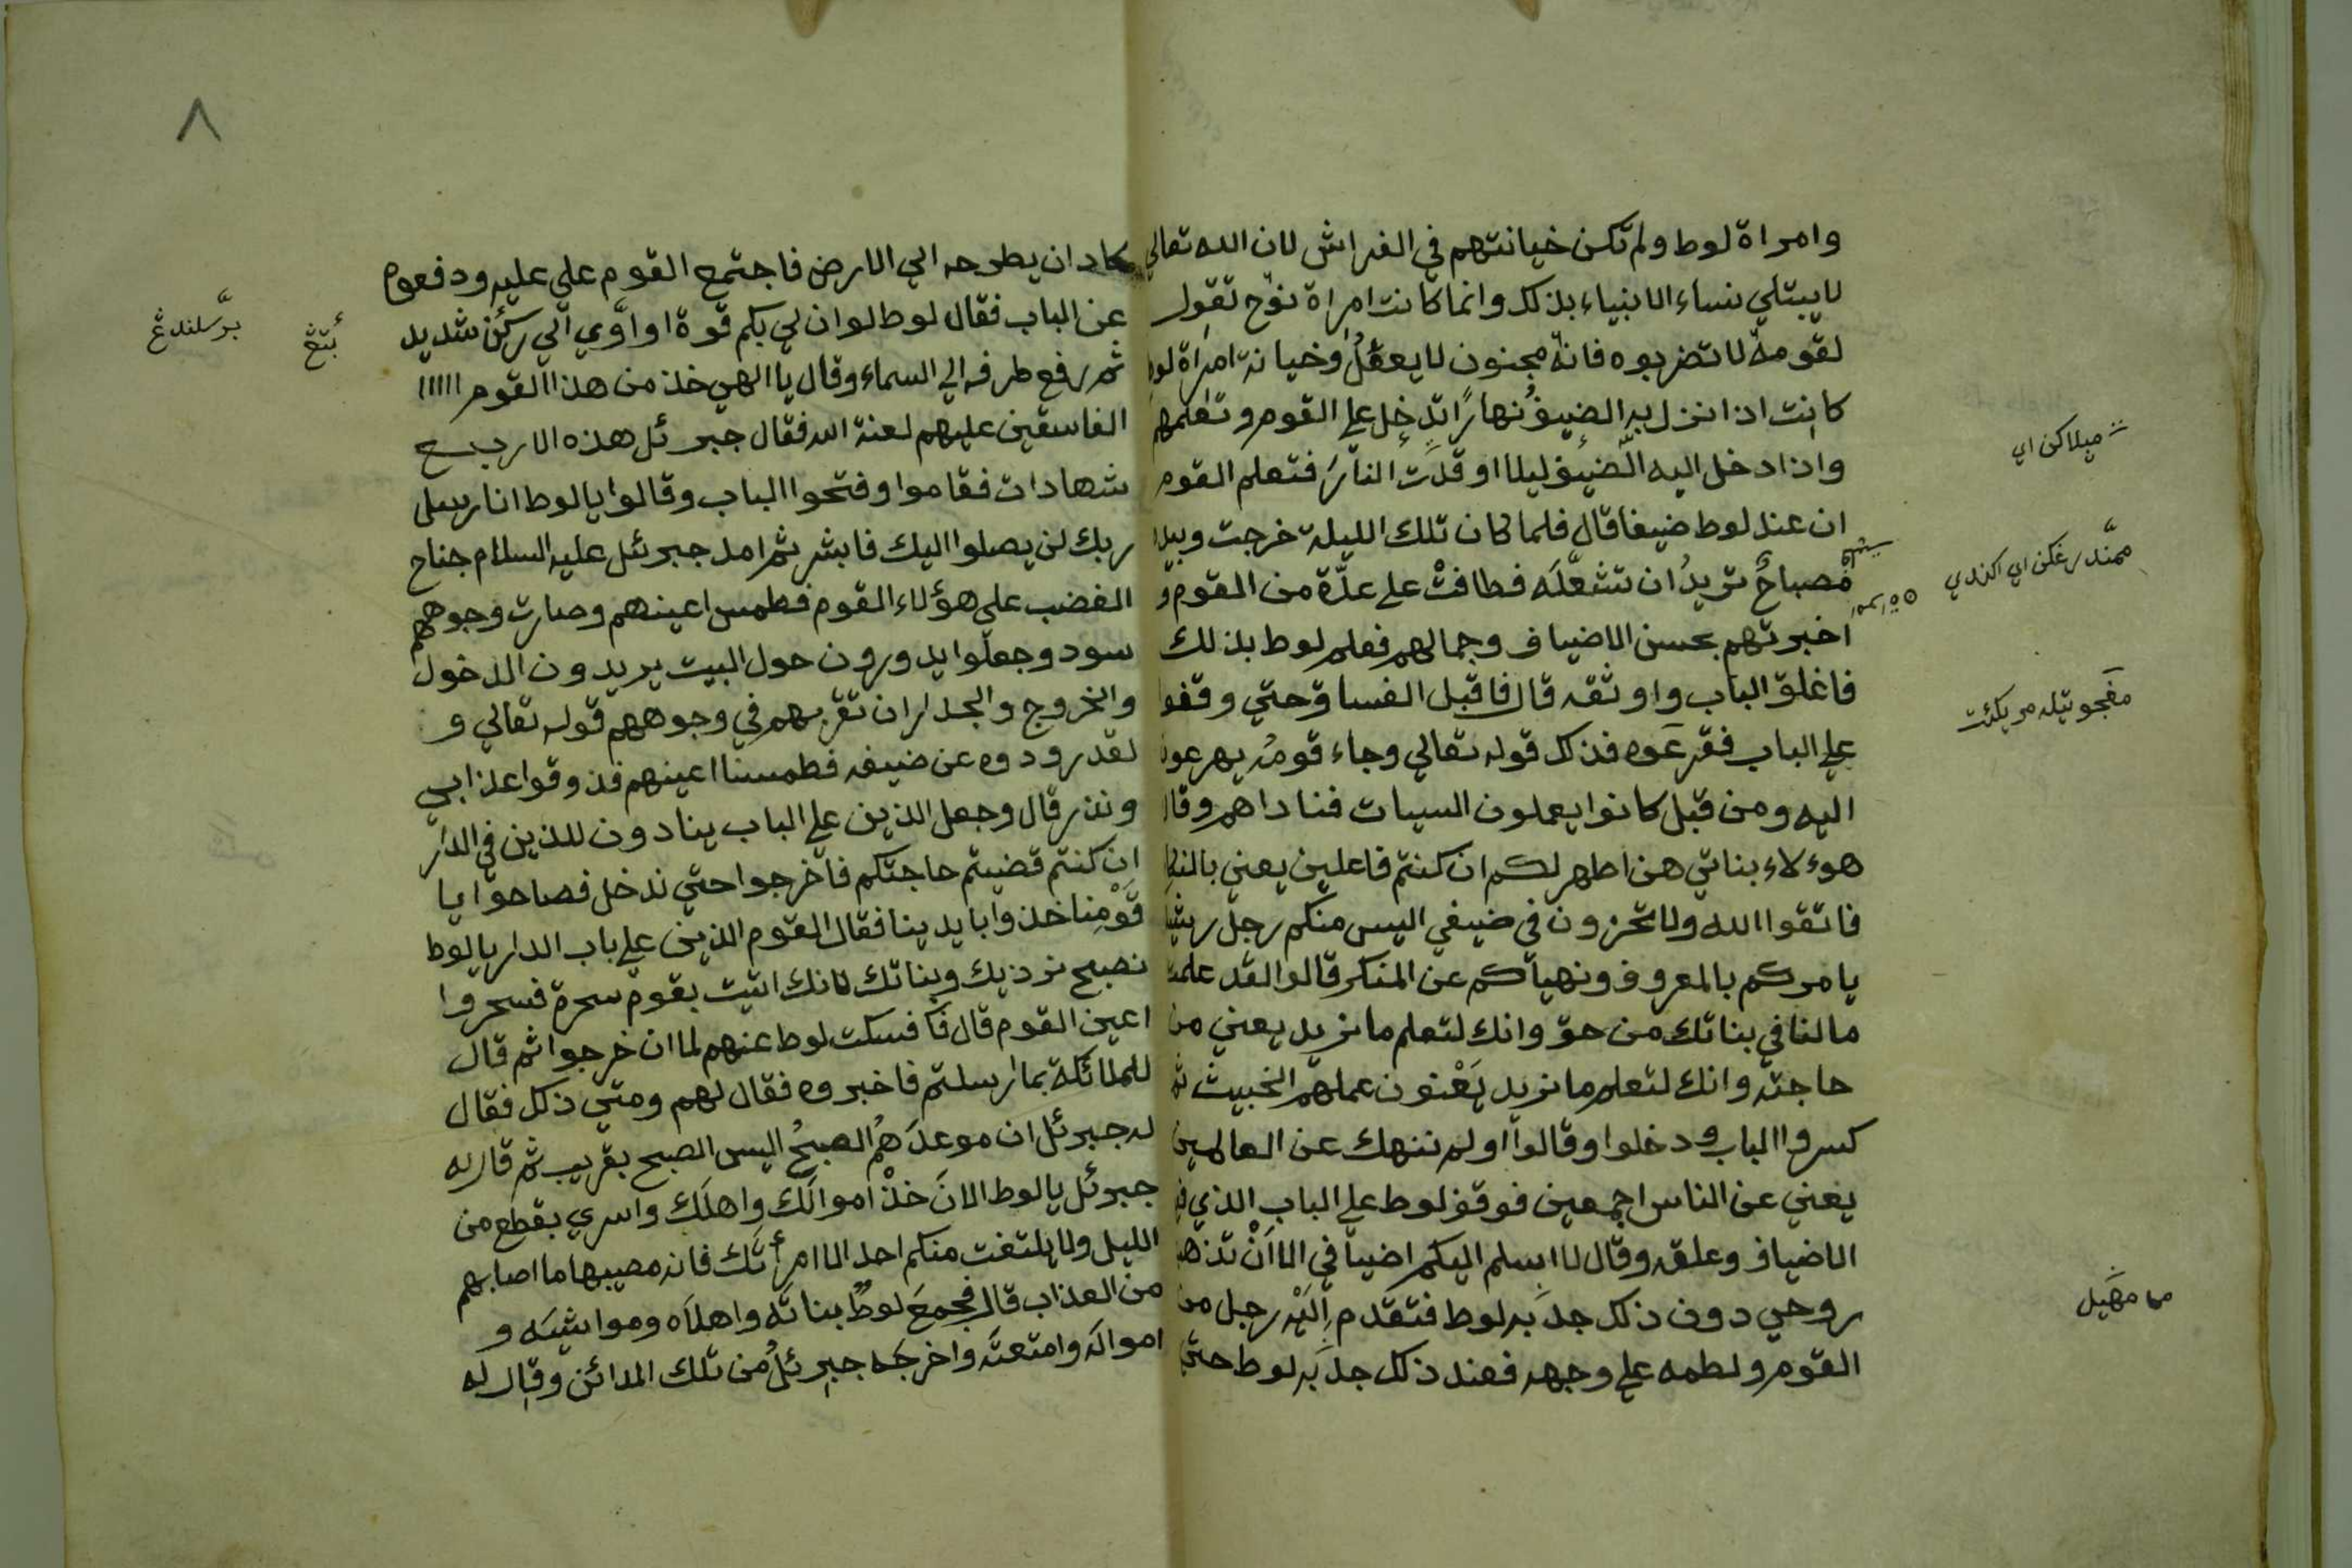 وامراة لوط ولم تكن خيانتهم في الفراش لان الله تعالي
لا يبتلي نساء الانبياء بذلك وانما كانت امراة نوح تقول
لقومه لا تضربوه فانه مجنون لا يعقل وخيانة امراة لوط
كانت اذا نزل به الضيف نهارًا تدخل علي القوم وتعلمهم
واذا دخل اليه الضيف ليلا اوقدت النار فتعلم القوم
ان عند لوط ضيفا قال فلما كان تلك الليلة خرجت وبيدها
مصباح تريد ان تشعله فطافت علي عدة من القوم و
اخبرتهم بحسن الاضياف وجمالهم فعلم لوط بذلك
فاغلق الباب واوثقه قال فاقبل الفساق حتي وقفوا
علي الباب فقرعوه فذلك قوله تعالي وجاء قومه يهرعون
اليه ومن قبل كانوا يعملون السيات فناداهم وقال
هوءلاء بناتي هن اطهر لكم ان كنتم فاعلين يعني بالنكا
فاتقوا الله ولا تخزون في ضيفي اليس منكم رجل رشيد
يامركم بالمعروف ونهياكم عن المنكر قالوا لقد علمت
مالنا في بناتك من حق وانك لتعلم ما نريد يعني من
حاجته وانك لتعلم ما نريد يَعْنون عملهم الخبيث ثم
كسروا الباب ودخلوا وقالوا اولم ننهك عن العالمين
يعني عن الناس اجمعين فوقف لوط علي الباب الذي فيه
الاضياف وعلقه وقال لا اسلم اليكم اضيافي الا اَنْ تذهب
روحي دون ذلك جدَبه لوط فتقدم اِلَيْه رجل من
القوم ولطمه علي وجهه فعند ذلك جدَبه لوط حتي
ميلاكن اي
ممندرغكن اي اكندي
مڤجوتيله مريكئت
مما مهيل
٨
كاد ان يطرحه الي الارض فاجتمع القوم علي عليه ودفعوه
عن الباب فقال لوط لو ان لي بكم قوة او اوي الي ركن شديد
ثم رفع طرفه الي السماء وقال يا الهي خذ من هذا القوم
الفاسقين عليهم لعنة الله فقال جبرئل هذه الاربع
شهادات فقاموا وفتحوا الباب وقالوا يا لوط انا رسل
ربك لن يصلوا اليك فابشر ثم امد جبرئل عليه السلام جناح
الغضب علي هؤلاء القوم فطمس اعينهم وصارت وجوههم
سود وجعلوا يدورون حول البيت يريدون الدخول
والخروج والجدران تقربهم في وجوههم قوله تعالي و
لقد رودوه عن ضيفه فطمسنا اعينهم فذوقوا عذابي
ونذر قال وجعل الذين علي الباب ينادون للذين في الدار
ان كنتم قضيتم حاجتكم فاخرجوا حتي ندخل فصاحوا يا
قَوْمِنا خذوا بايدينا فقال القوم الذين علي باب الدار يا لوط
نصبح نرذيك وبناتك لانك اتيت بقوم سحرة فسحروا
اعين القوم قال فكا فسكت لوط عنهم لما ان خرجوا ثم قال
للملائكة بما ارسلتم فاخبروه فقال لهم ومتي ذلك فقال
له جبرئل ان موعدَهُم الصبحُ اليس الصبح بقريب ثم قال له
جبرئل يا لوط الانَ خذْ اموالَك واهلَك واسري بقطع من
الليل ولا يلتفت منكم احد الا امرأتَك فانه مصيبها ما اصابهم
من العذاب قال فجمعَ لوطٌ بناتَه واهلَاه ومواشيَه و
اموالَه وامتعتَه واخرجَه جبرئلُ من تلك المدائن وقال له
برسلندڠ